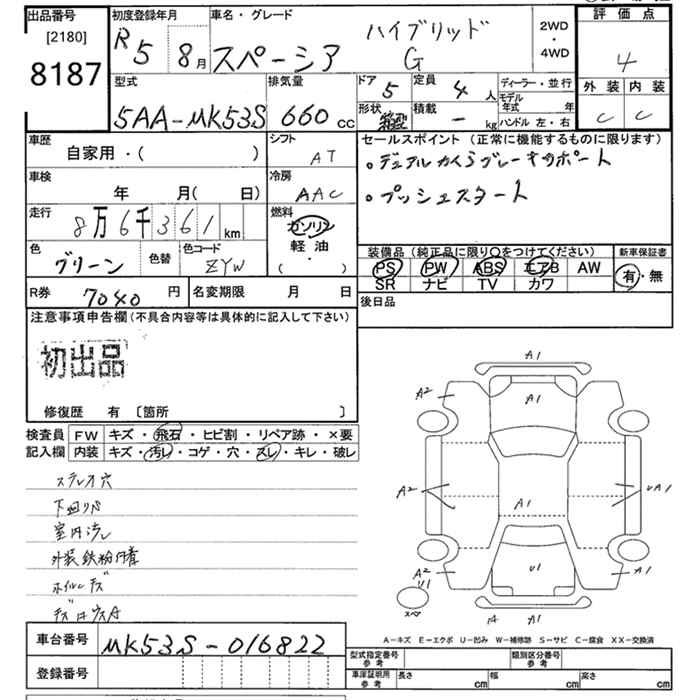 出品番号
[2180]
8187
初度登録年月
R5 8月
車名・グレード
スペーシア
ハイブリッド
G
2WD
・
4WD
評価点
4
外装 内装
C C
型式
5AA-MK53S
排気量
660 cc
ドア
5
定員
4人
形状
積載
- kg
ディーラー・並行
モデル年式 年
ハンドル 左・右
車歴
自家用・( )
シフト
AT
車検
年 月( 日)
冷房
AAC
走行
8万6千361km
燃料
ガソリン
軽油
( ・ )
色
グリーン
色替
色コード
ZYW
セールスポイント (正常に機能するものに限ります)
・プッシュスタート
装備品 (純正品に限り○をつけてください)
PS PW ABS エアB AW
SR ナビ TV カワ
新車保証書
有・無
R券
7040円
名変期限 月 日
後日品
注意事項申告欄(不具合内容等は具体的に記入して下さい)
初出品
修復歴 有 〔箇所 〕
検査員
記入欄
FW キズ・飛石・ヒビ割・リペア跡・×要
内装 キズ・汚レ・コゲ・穴・スレ・キレ・破レ
ステレオ穴
下回リサビ
室内汚レ
外装鉄粉付着
ホイルキズ
A1
A2
A1
A2
A1
UA1
A2
U1
U1
A1
スペア
A1
A-キズ E-エクボ U-凹み W-補修跡 S-サビ C-腐食 XX-交換済
車台番号
MK53S-016822
登録番号
型式指定番号
参考
類別区分番号
参考
車庫証明用
参考
長さ cm 幅 cm 高さ cm